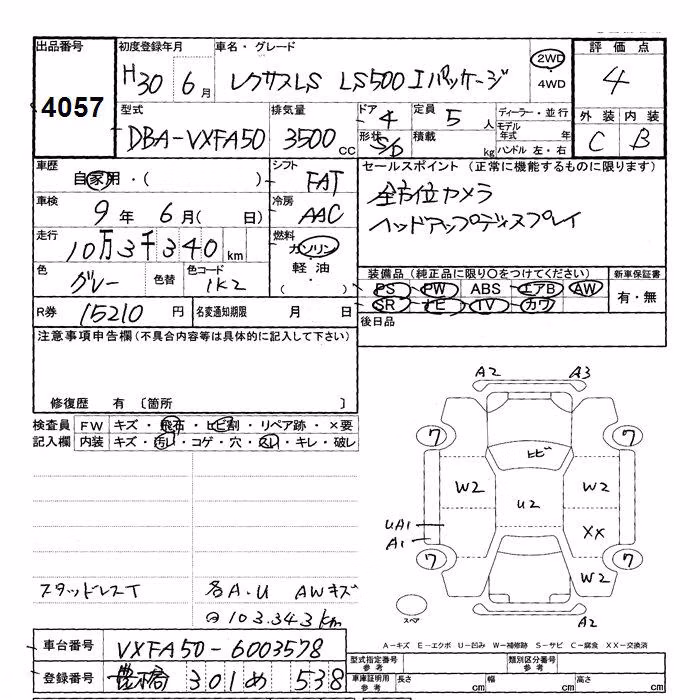 出品番号 初度登録年月 車名・グレード 評価点
4057 H30 6月 レクサスLS LS500 Iパッケージ 2WD・4WD 4
型式 排気量 ドア 4 定員 5人 ディーラー・並行 外装 内装
DBA-VXFA50 3500cc 形状 S/D 積載 kg モデル年式 年 ハンドル 左・右 C B
車歴 自家用・( ) シフト FAT セールスポイント (正常に機能するものに限ります)
車検 9年 6月( 日) 冷房 AAC 全方位カメラ
走行 10万3千340km 燃料 ガソリン・軽油・( ) ヘッドアップディスプレイ
色 グレー 色替 色コード 1K2 装備品 (純正品に限り〇をつけてください) 新車保証書
PS PW ABS エアB AW 有・無
SR ナビ TV カワ
R券 15210円 名変通知期限 月 日 後日品
注意事項申告欄 (不具合内容等は具体的に記入して下さい)
修復歴 有 〔箇所 〕
検査員 FW キズ・飛石・ヒビ割・リペア跡・×要
記入欄 内装 キズ・汚レ・コゲ・穴・スレ・キレ・破レ
A2 A3
7 7
ヒビ
W2 U2 W2
UA1 XX
A1
7 7
W2
スペア A2
スタッドレスT 各A・U AWキズ
103.343km
A－キズ E－エクボ U－凹み W－補修跡 S－サビ C－腐食 XX－交換済
車台番号 VXFA50-6003578
登録番号 豊橋 301 め 538
型式指定番号 参考 類別区分番号 参考
車庫証明用 参考 長さ cm 幅 cm 高さ cm